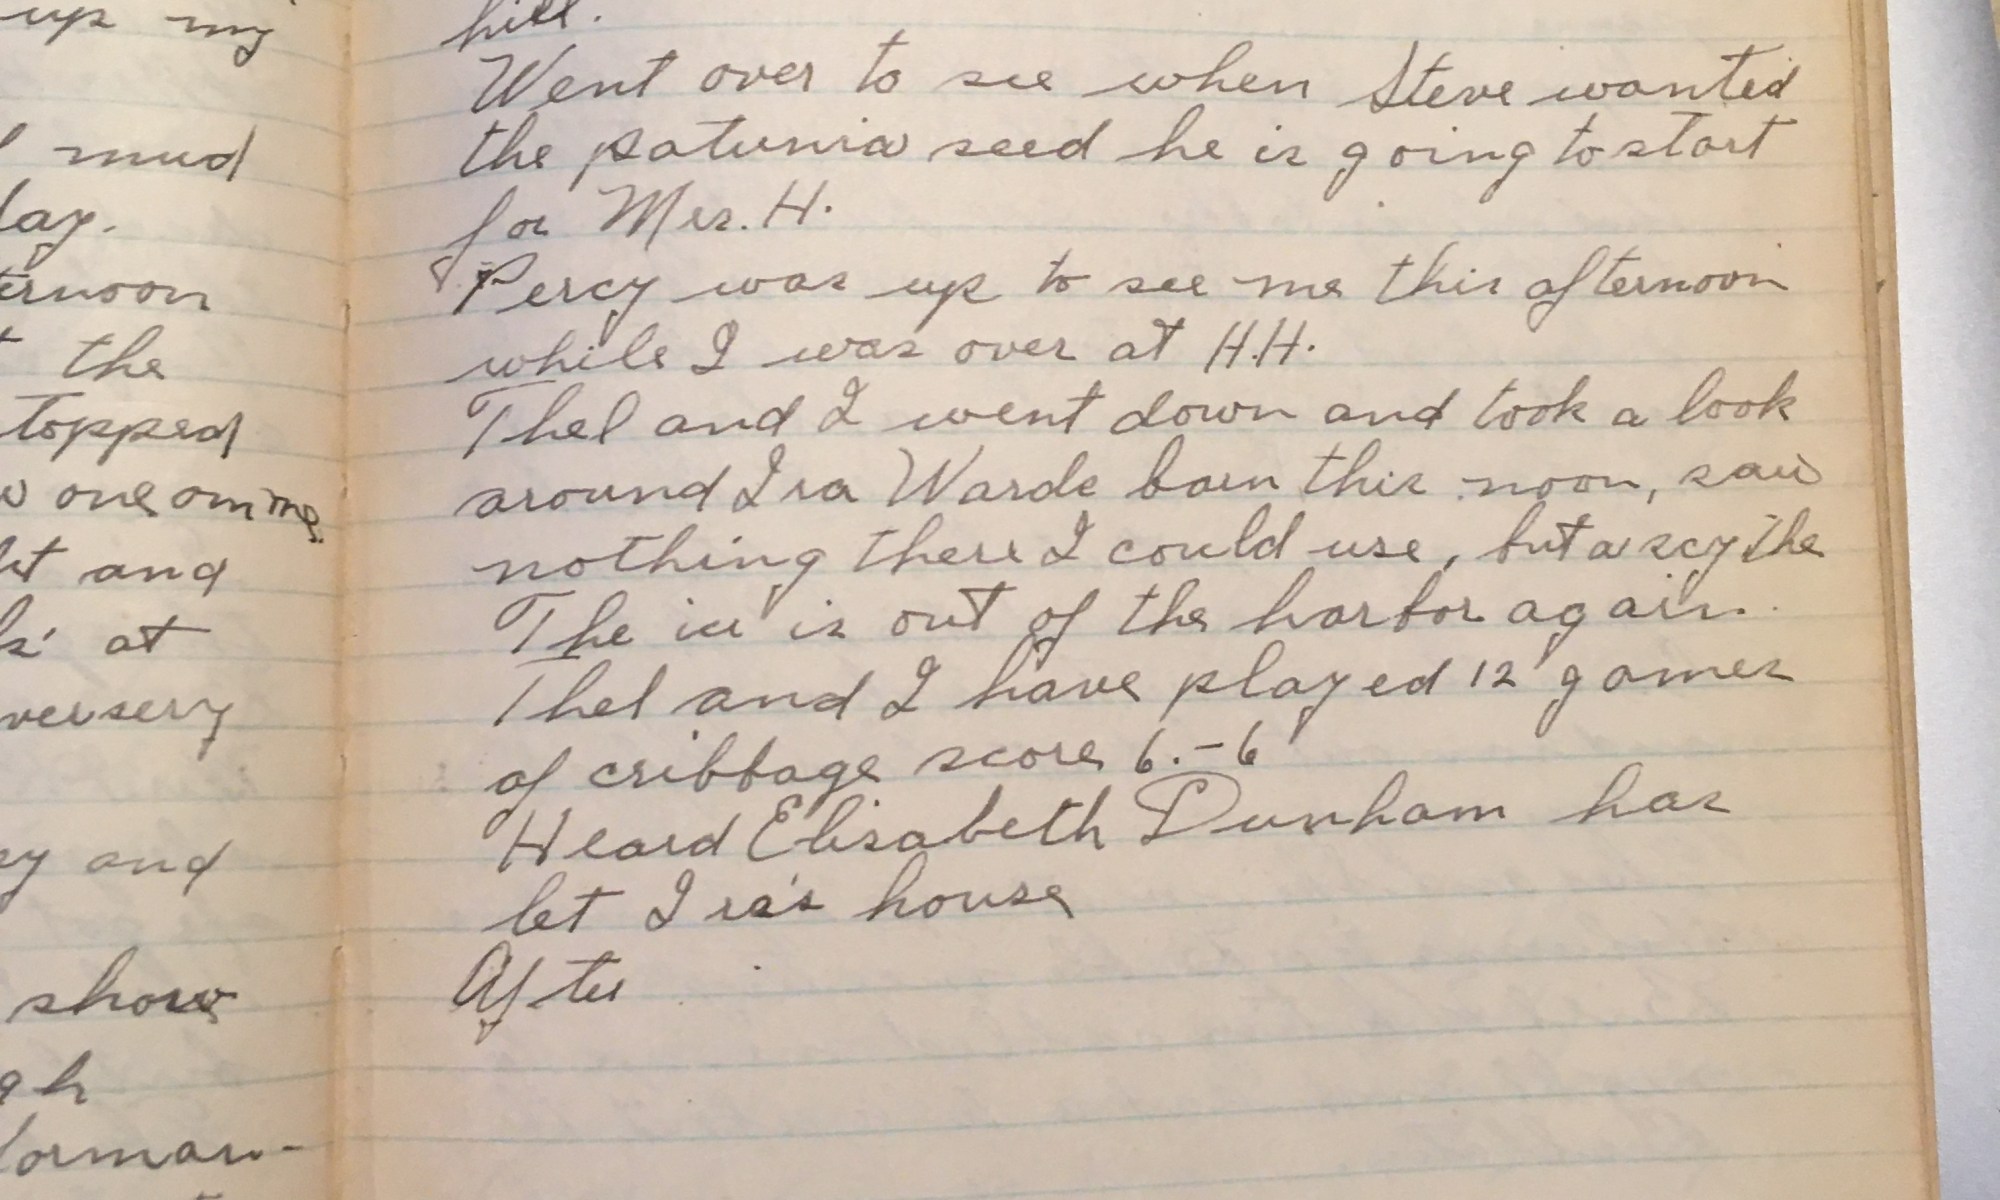 up my
mud
lay.
ernoon
the
topped
one on me
and
at
versery
and
show
gh
Jorman-
hill.
Went over to see when Steve wanted
the patunia seed he is going to start
for Mrs. H.
Percy was up to see me this afternoon
while I was over at H.H.
Thel and I went down and took a look
around Ira Warde barn this noon, saw
nothing there I could use, but a scythe
The ice is out of the harbor again.
Thel and I have played 12 games
of cribbage score 6.-6
Heard Elisabeth Dunham has
let Ira's house
After